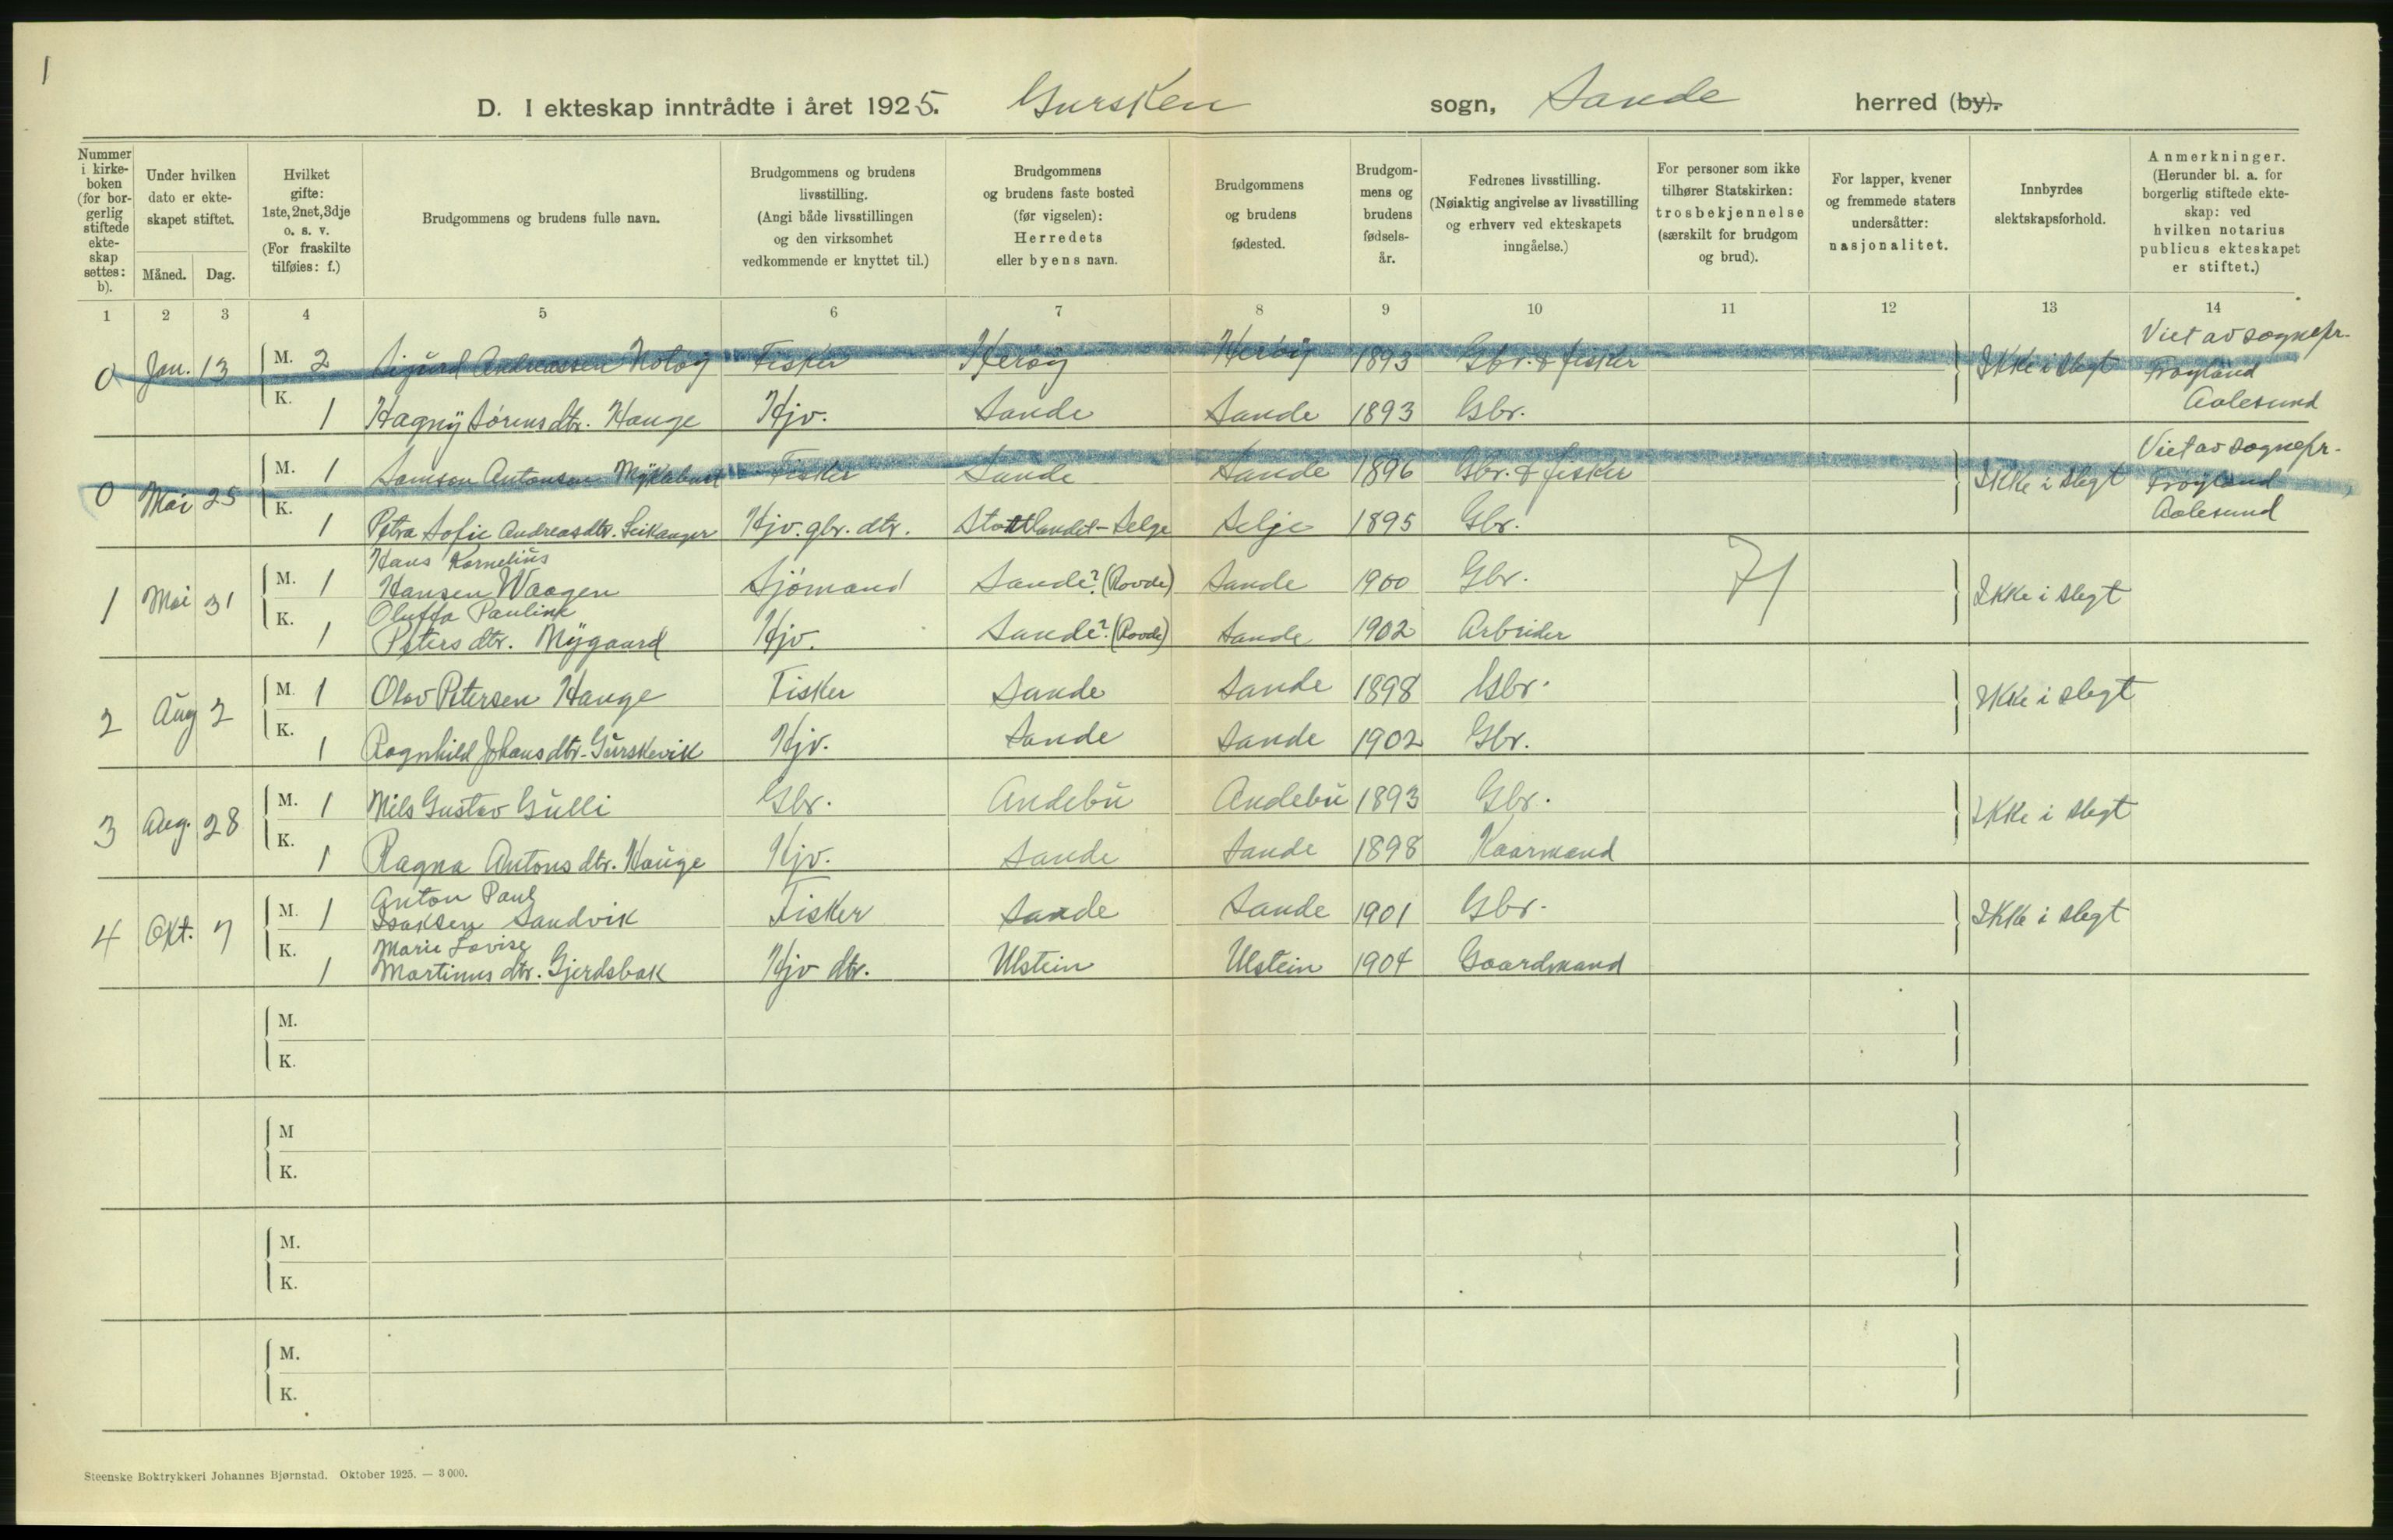 1
D. I ekteskap inntrådte i året 1925. Gursken sogn, Sande herred (by).
Nummer i kirke-boken (for bor-gerlig stiftede ekte-skap settes: b).
Under hvilken dato er ekte-skapet stiftet.
Måned. Dag.
Hvilket gifte: 1ste, 2net, 3dje o. s. v. (For fraskilte tilføies: f.)
Brudgommens og brudens fulle navn.
Brudgommens og brudens livsstilling. (Angi både livsstillingen og den virksomhet vedkommende er knyttet til.)
Brudgommens og brudens faste bosted (før vigselen): Herredets eller byens navn.
Brudgommens og brudens fødested.
Brudgom-mens og brudens fødsels-år.
Fedrenes livsstilling. (Nøiaktig angivelse av livsstilling og erhverv ved ekteskapets inngåelse.)
For personer som ikke tilhører Statskirken: trosbekjennelse (særskilt for brudgom og brud).
For lapper, kvener og fremmede staters undersåtter: nasjonalitet.
Innbyrdes slektskapsforhold.
Anmerkninger. (Herunder bl. a. for borgerlig stiftede ekte-skap: ved hvilken notarius publicus ekteskapet er stiftet.)
1 2 3 4 5 6 7 8 9 10 11 12 13 14
0 Jan. 13 M. 2 Sigurd Andreassen Notøy Fisker Herøy Herøy 1893 Gbr. & fisker Ikke i slegt Viet av sognepr. Frøyland Aalesund
K. 1 Hagny Sørensdtr. Hauge Hjv. Sande Sande 1893 Gbr.
0 Mai 25 M. 1 Samson Antonsen Myklebust Fisker Sande Sande 1896 Gbr. & fisker Ikke i slegt Viet av sognepr. Frøyland Aalesund
K. 1 Petra Sofie Andreasdtr. Leikanger Hjv. gbr. dtr. Stattlandet - Selje Selje 1895 Gbr.
1 Mai 31 M. 1 Hans Kornelius Hansen Waagen Sjömand Sande? (Rovde) Sande 1900 Gbr. Ikke i slegt
K. 1 Oluffa Pauline Peters dtr. Mygaard Hjv. Sande? (Rovde) Sande 1902 Arbeider
2 Aug 2 M. 1 Olav Petersen Hauge Fisker Sande Sande 1898 Gbr. Ikke i slegt
K. 1 Ragnhild Johans dtr. Gurskevik Hjv. Sande Sande 1902 Gbr.
3 Aug. 28 M. 1 Nils Gustav Gulli Gbr. Andebu Andebu 1893 Gbr. Ikke i slegt
K. 1 Ragna Antons dtr. Hauge Hjv. Sande Sande 1898 Kaarmand
4 Okt. 7 M. 1 Anton Paul Isaksen Sandvik Fisker Sande Sande 1901 Gbr. Ikke i slegt
K. 1 Marie Lovise Martinus dtr. Gjerdsbak Hjv dtr. Ulstein Ulstein 1904 Gaardmand
M.
K.
M
K.
M.
K.
M.
K.
Steenske Boktrykkeri Johannes Bjørnstad. Oktober 1925. — 3000.